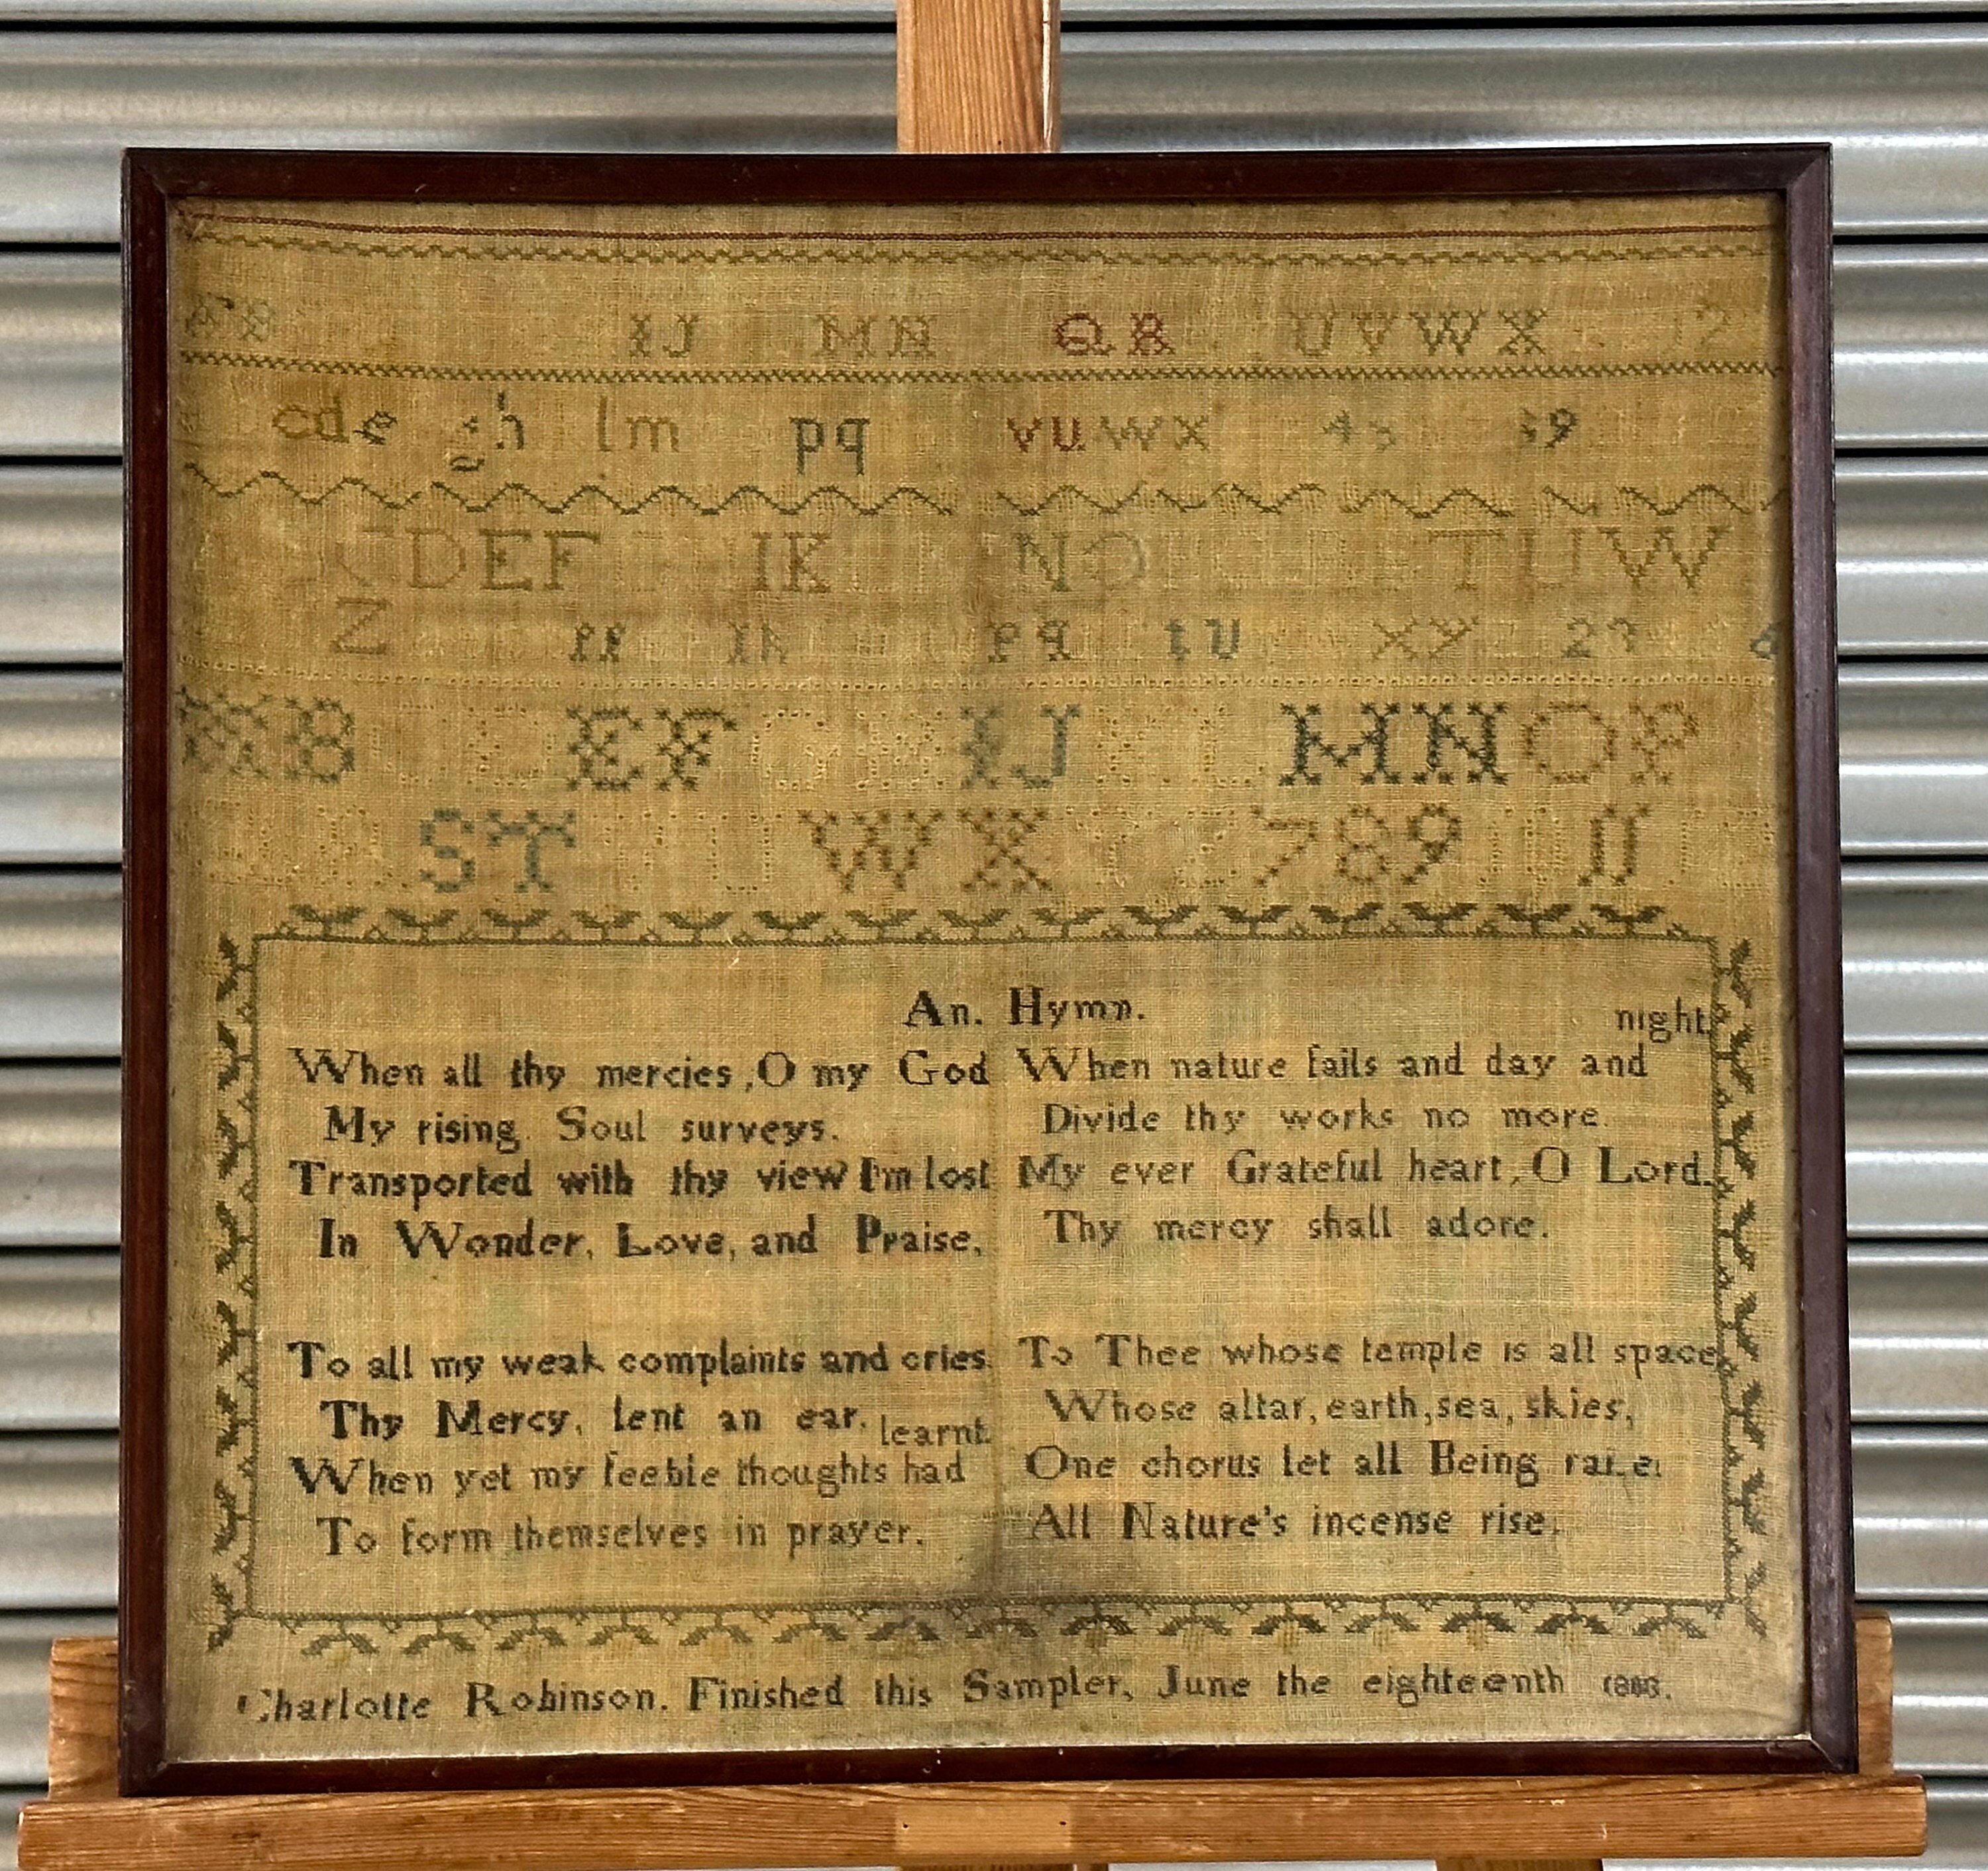 A B I J M N Q R U V W X 1 2
c d e g h l m p q v u w x 4 5 9
C D E F I K N O T U W
Z p q t u x y 2 6
A B E F I J M N O P
S T W X 7 8 9
An. Hymn.
When all thy mercies, O my God
My rising. Soul surveys.
Transported with thy view I'm lost
In Wonder, Love, and Praise,
To all my weak complaints and cries.
Thy Mercy, lent an ear.
learnt.
When yet my feeble thoughts had
To form themselves in prayer.
night.
When nature fails and day and
Divide thy works no more.
My ever Grateful heart, O Lord.
Thy mercy shall adore.
To Thee whose temple is all space
Whose altar, earth, sea, skies,
One chorus let all Being
All Nature's incense rise.
Charlotte Robinson. Finished this Sampler, June the eighteenth